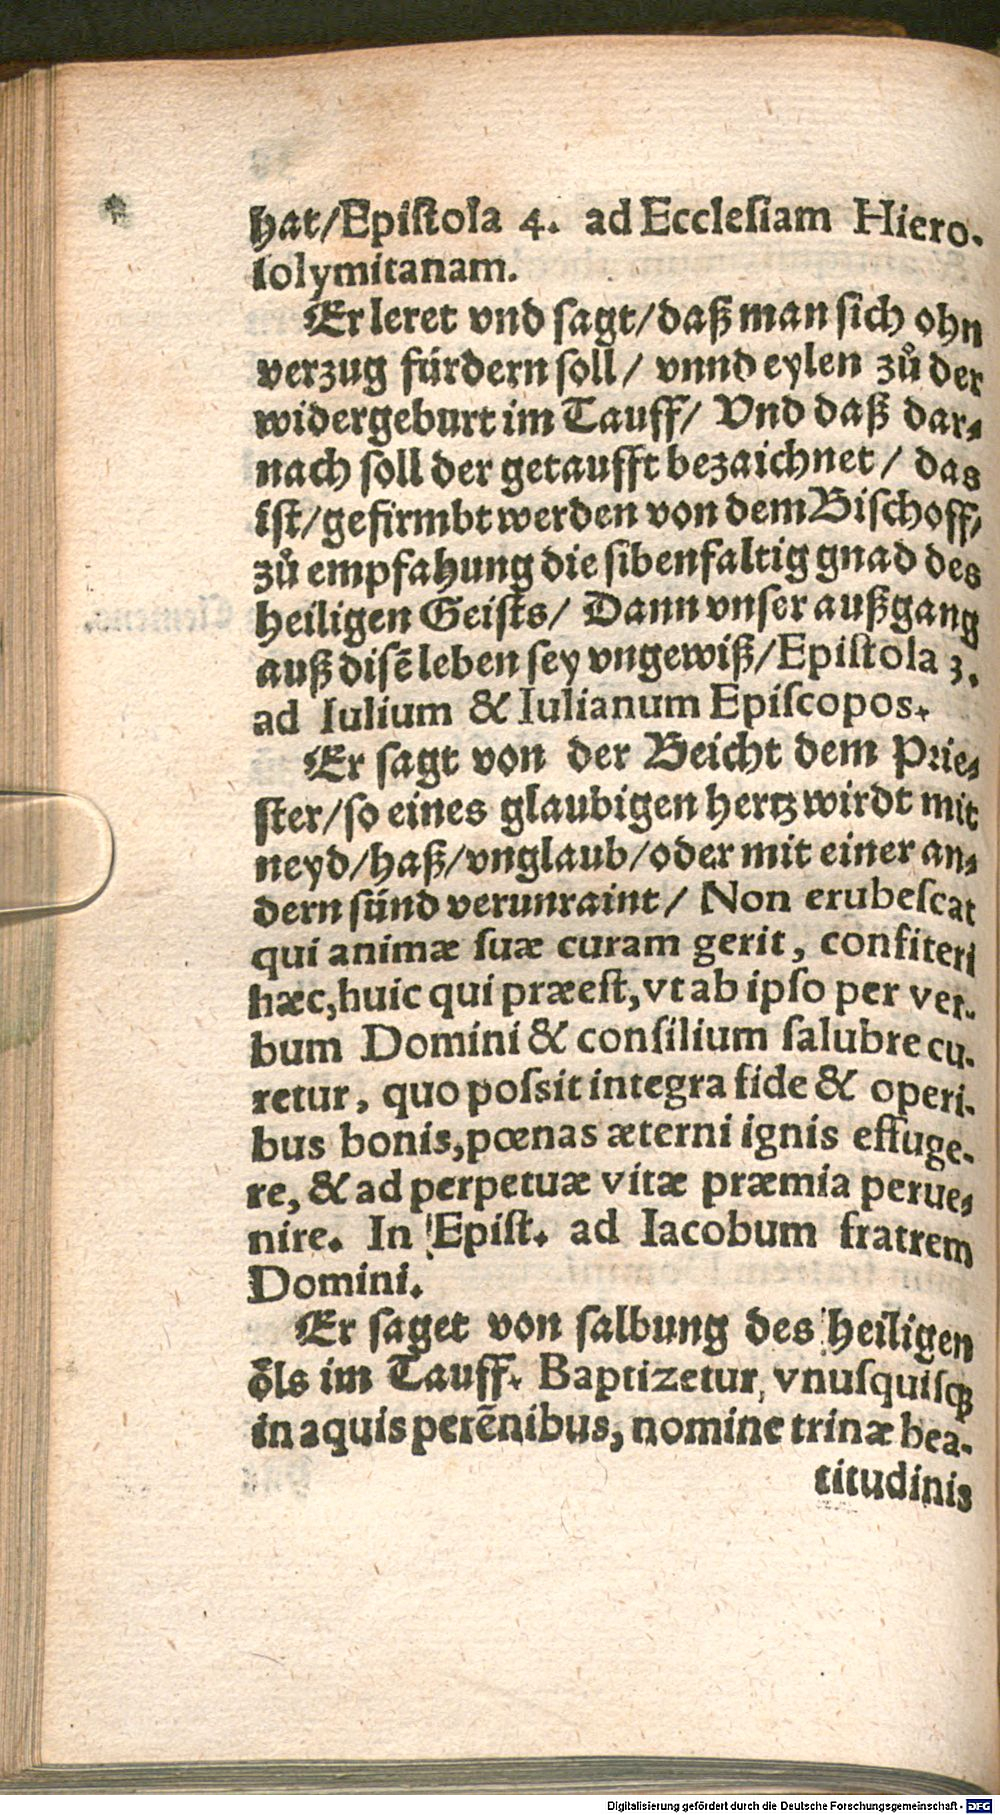 hat/Epiſtola 4. ad Eccleſiam Hiero-
ſolymitanam.
Er leret vnd ſagt/daß man ſich ohn
verzug fürdern ſoll/ vnnd eylen zů der
widergeburt im Tauff/ Vnd daß dar⸗
nach ſoll der getaufft bezaichnet/ das
iſt/gefirmbt werden von dem Biſchoff/
zů empfahung die ſibenfaltig gnad des
heiligen Geiſts/ Dann vnſer außgang
auß diſē leben ſey vngewiß/Epiſtola 3.
ad Iulium & Iulianum Epiſcopos.
Er ſagt von der Beicht dem Prie⸗
ſter/ſo eines glaubigen hertz wirdt mit
neyd/haß/vnglaub/oder mit einer an⸗
dern ſünd verunraint/ Non erubeſcat
qui animæ ſuæ curam gerit, confiteri
hæc,huic qui præeſt,vt ab ipſo per ver-
bum Domini & conſilium ſalubre cu-
retur, quo poſsit integra fide & operi-
bus bonis,pœnas æterni ignis effuge-
re, & ad perpetuæ vitæ præmia perue⸗
nire. In Epiſt. ad Iacobum fratrem
Domini.
Er ſaget von ſalbung des heiligen
öls im Tauff. Baptizetur, vnuſquiſqꝫ
in aquis perēnibus, nomine trinæ bea-
titudinis
Digitalisierung gefördert durch die Deutsche Forschungsgemeinschaft - DFG